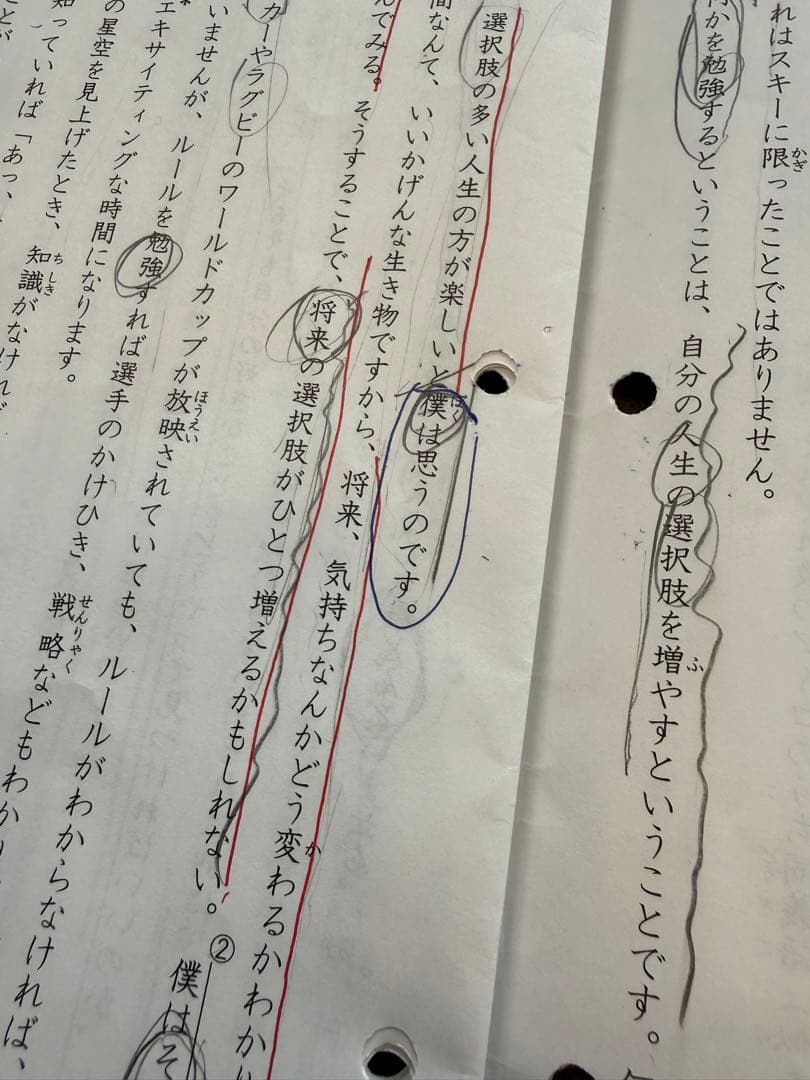 れはスキーに限ったことではありません。
かぎ
かを勉強するということは、自分の人生の選択肢を増やすということです。
ふ
選択肢の多い人生の方が楽しいと僕は思うのです。
ぼく
間なんて、いいかげんな生き物ですから、将来、気持ちなんかどう変わるかわかり
か
んでみる。そうすることで、将来の選択肢がひとつ増えるかもしれない。
②
僕はそ
カーやラグビーのワールドカップが放映されていても、ルールがわからなければ、
ほうえい
いませんが、ルールを勉強すれば選手のかけひき、戦略などもわかり
せんりゃく
エキサイティングな時間になります。
の星空を見上げたとき、知識がなければ
ちしき
知っていれば「あっ、
ことが